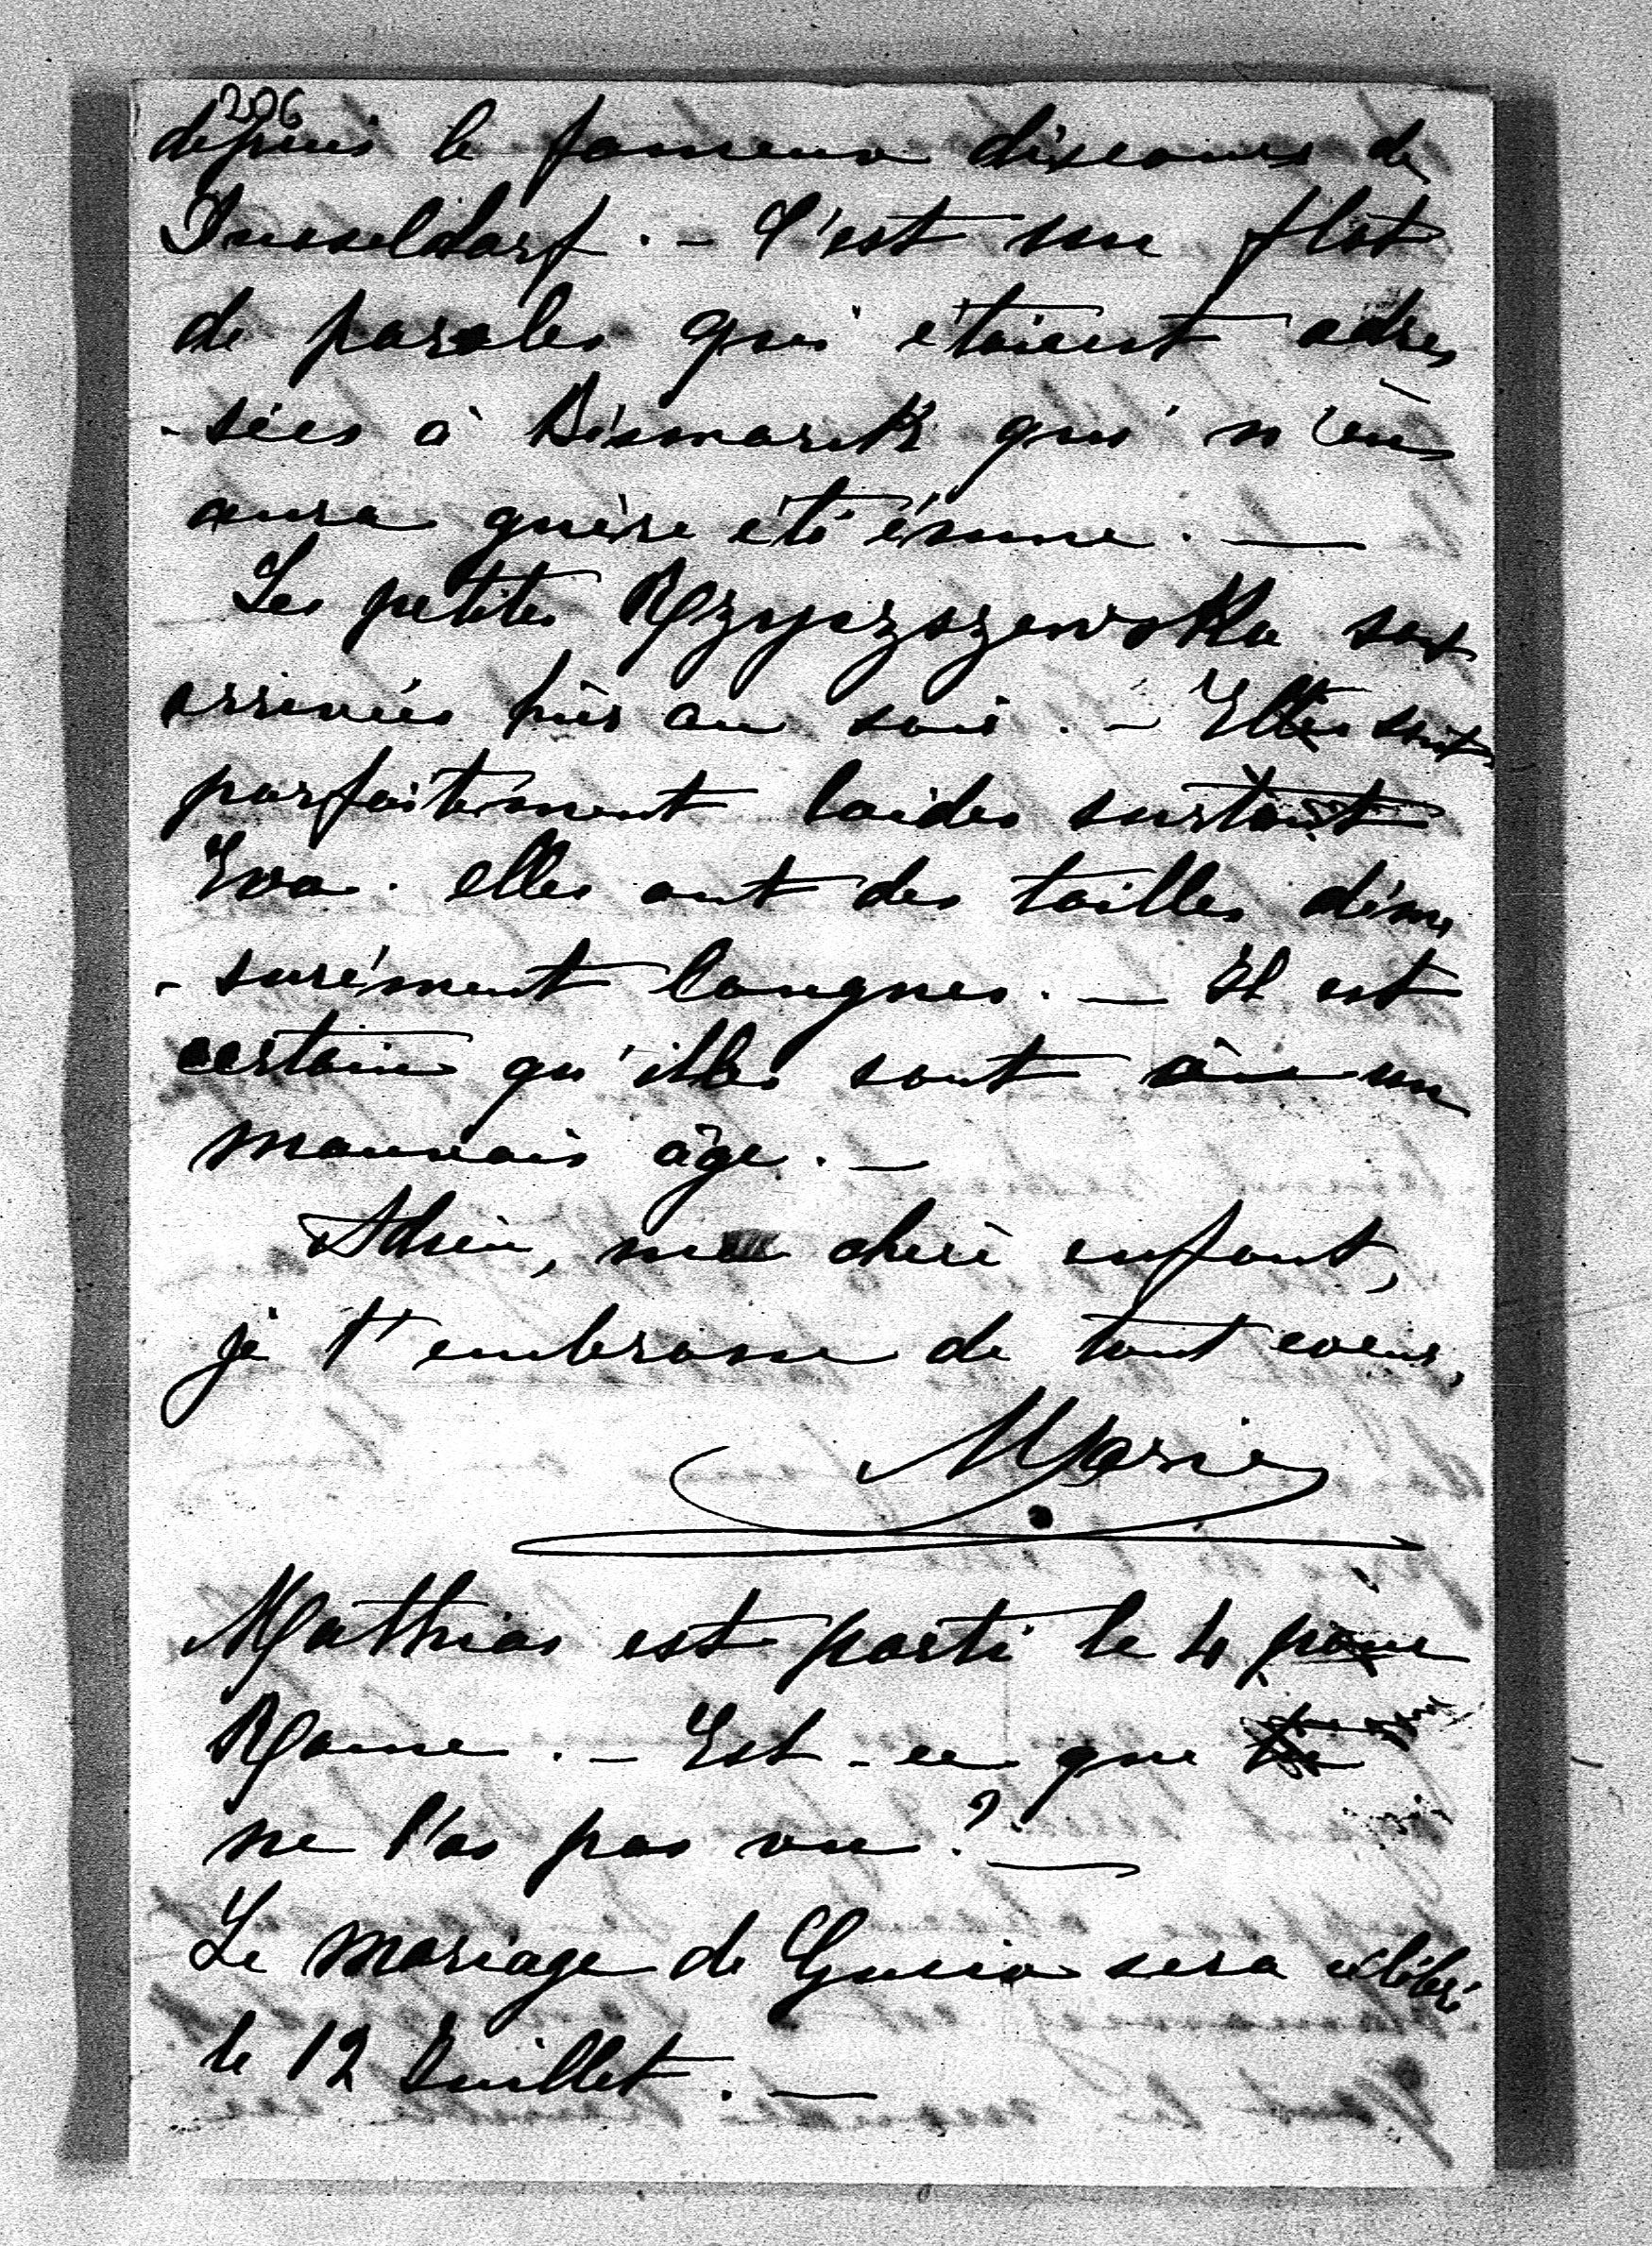 206
depuis le fameux discours de
Dusseldorf. - C'est un flot
de paroles qui étaient adres
- sées à Bismarck qui n'en
aura guère été émue. —
Les petites Rzyszszewska sont
arrivées hier au soir. - Elles sont
parfaitement laides surtout
Eva. elles ont des tailles déme
- surément longues. — Il est
certain qu'elles sont à un
mauvais âge. —
Adieu, ma chère enfant,
je t'embrasse de tout coeur,
Marie
Mathias est parti le 4 pour
Rome. - Est-ce que
ne l'as pas vu? —
Le mariage de Gucia sera célébré
le 12 Juillet. —